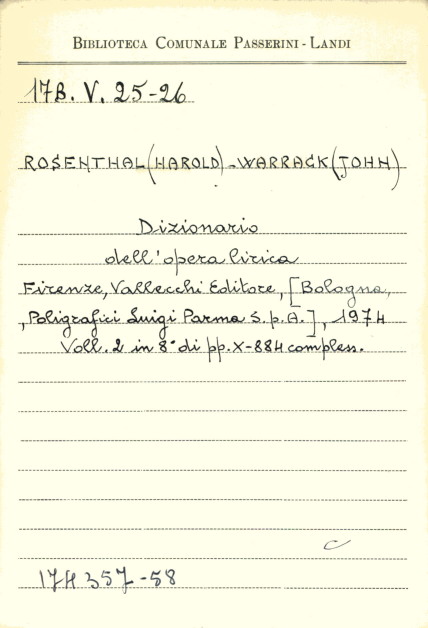 BIBLIOTECA COMUNALE PASSERINI-LANDI
17B. V. 25-26
ROSENTHAL(HAROLD)-WARRACK(JOHN)
Dizionario
dell'opera lirica
Firenze, Vallecchi Editore, [Bologna,
,Poligrafici Luigi Parma S.p.A.], 1974
Voll. 2 in 8° di pp. X-884 compless.
C
174357-58